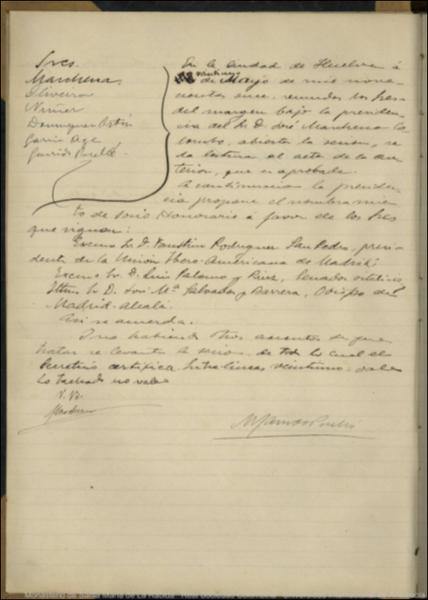 Sres.
Marchena
Oliveira
Muñoz
Dominguez Ortiz
Garcia
Garrido Perelló
En la ciudad de Huelva á
veintiuno
de Mayo de mil nove-
cientos once, reunidos los Sres
del margen bajo la presiden-
cia del Sr. D. José Marchena Co-
lombo, abierta la sesion, se
da lectura al acta de la an-
terior, que es aprobada.
A continuacion la presiden-
cia propone el nombramien-
to de Socio Honorario á favor de los Sres
que siguen:
Excmo Sr. D. Faustino Rodriguez San Pedro, presi-
dente de la Unión Ibero-Americana de Madrid;
Excmo Sr. D. Luis Palomo y Ruiz, Senador vitalicio
Iltmo Sr. D. José Mª Salvador y Barrera, Obispo de
Madrid-Alcalá.
Asi se acuerda.
Y no habiendo otros asuntos de que
tratar se levantó la sesion, de todo lo cual el
Secretario certifica. Entre lineas veintiuno vale
Lo tachado no vale
V. B.
Marchena